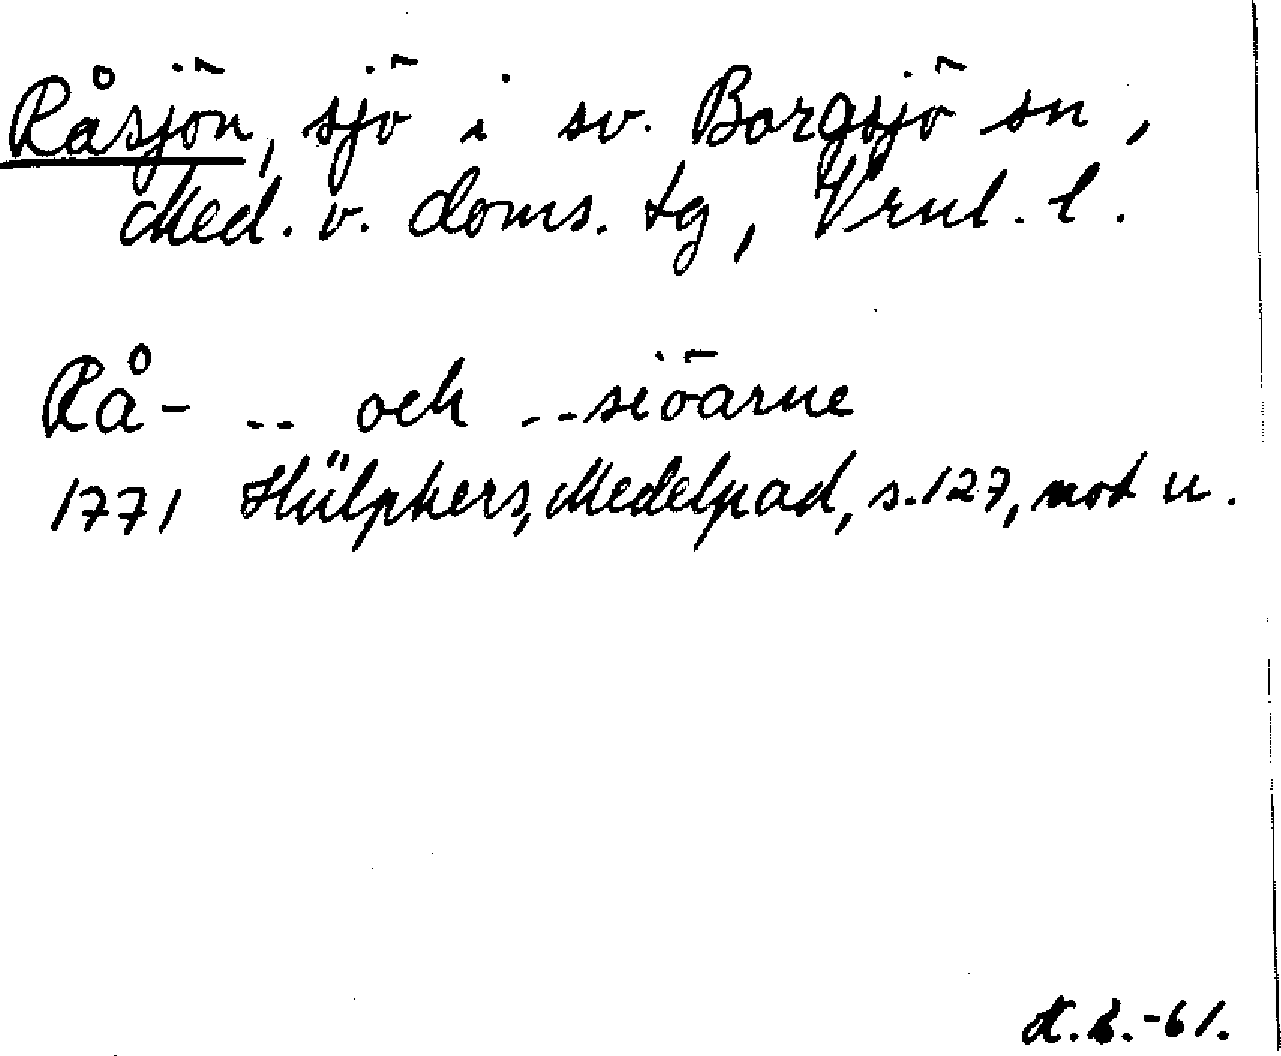 Råsjön, sjö i sv. Borgsjö sn,
Med. v. doms. tg, Vrnl. l.
Rå- -- och --siöarne
1771 Hülphers, Medelpad, s. 127, not u.
-61.